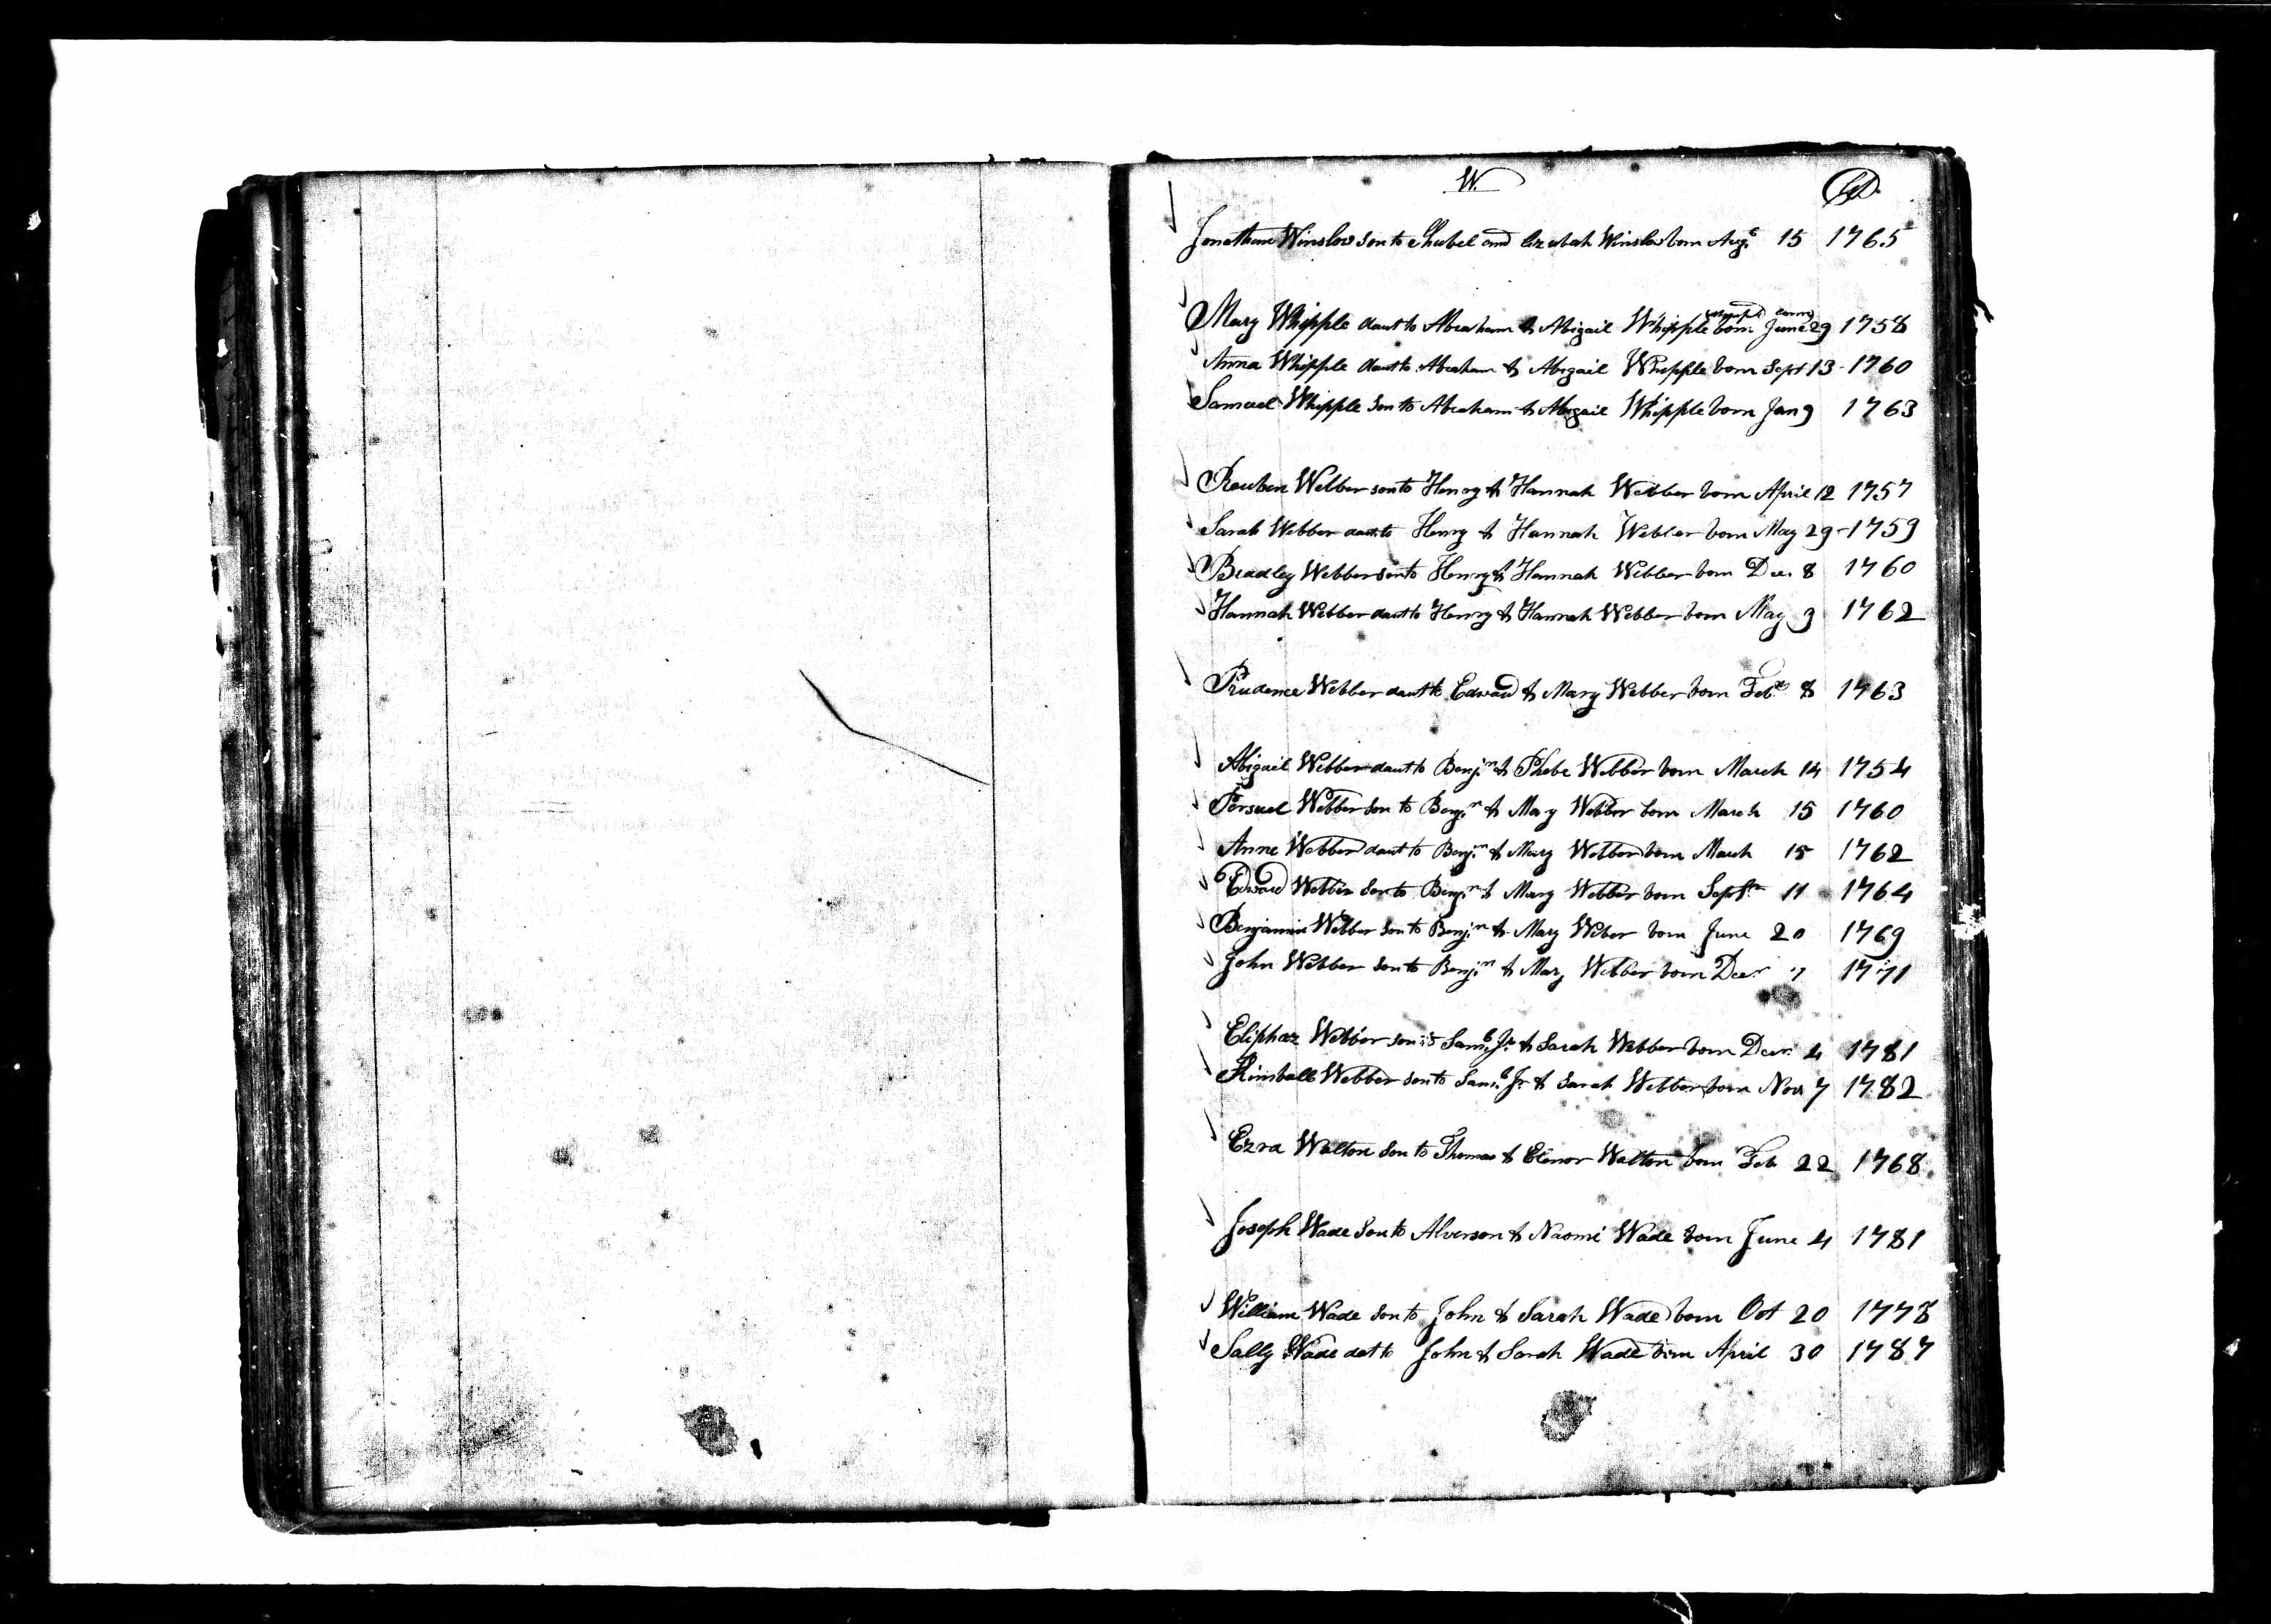 W
Jonathan Winslow son to Shubel and Winslow born Augt 15 1765
Mary Whipple daut to Abraham & Abigail Whipple born June 29 1758
Anna Whipple daut to Abraham & Abigail Whipple born Sept 13 1760
Samuel Whipple son to Abraham & Abigail Whipple born Jan 9 1763
Reuben Webber son to Henry & Hannah Webber born April 12 1757
Sarah Webber daut to Henry & Hannah Webber born May 29 - 1759
Bradley Webber son to Henry & Hannah Webber born Dec. 8 1760
Hannah Webber daut to Henry & Hannah Webber born May 9 1762
Prudence Webber daut to Edward & Mary Webber born Feby 8 1763
Abigail Webber daut to Benj.n & Phebe Webber born March 14 1754
Persuel Webber son to Benj.n & Mary Webber born March 15 1760
Anne Webber daut to Benj.n & Mary Webber born March 15 1762
Edward Webber son to Benj.n & Mary Webber born Septr 11 1764
Benjamin Webber son to Benj.n & Mary Weber born June 20 1769
John Webber son to Benj.n & Mary Webber born Decr 7 1771
Eliphaz Webber son to Saml. Jr. & Sarah Webber born Decr. 4 1781
Kimball Webber son to Saml. Jr. & Sarah Webber born Nov 7 1782
Ezra Walton son to Thomas & Elenor Walton born Feb 22 1768
Joseph Wade son to Alverson & Naomi Wade born June 4 1781
William Wade son to John & Sarah Wade born Oct 20 1778
Sally Wade dat to John & Sarah Wade born April 30 1787